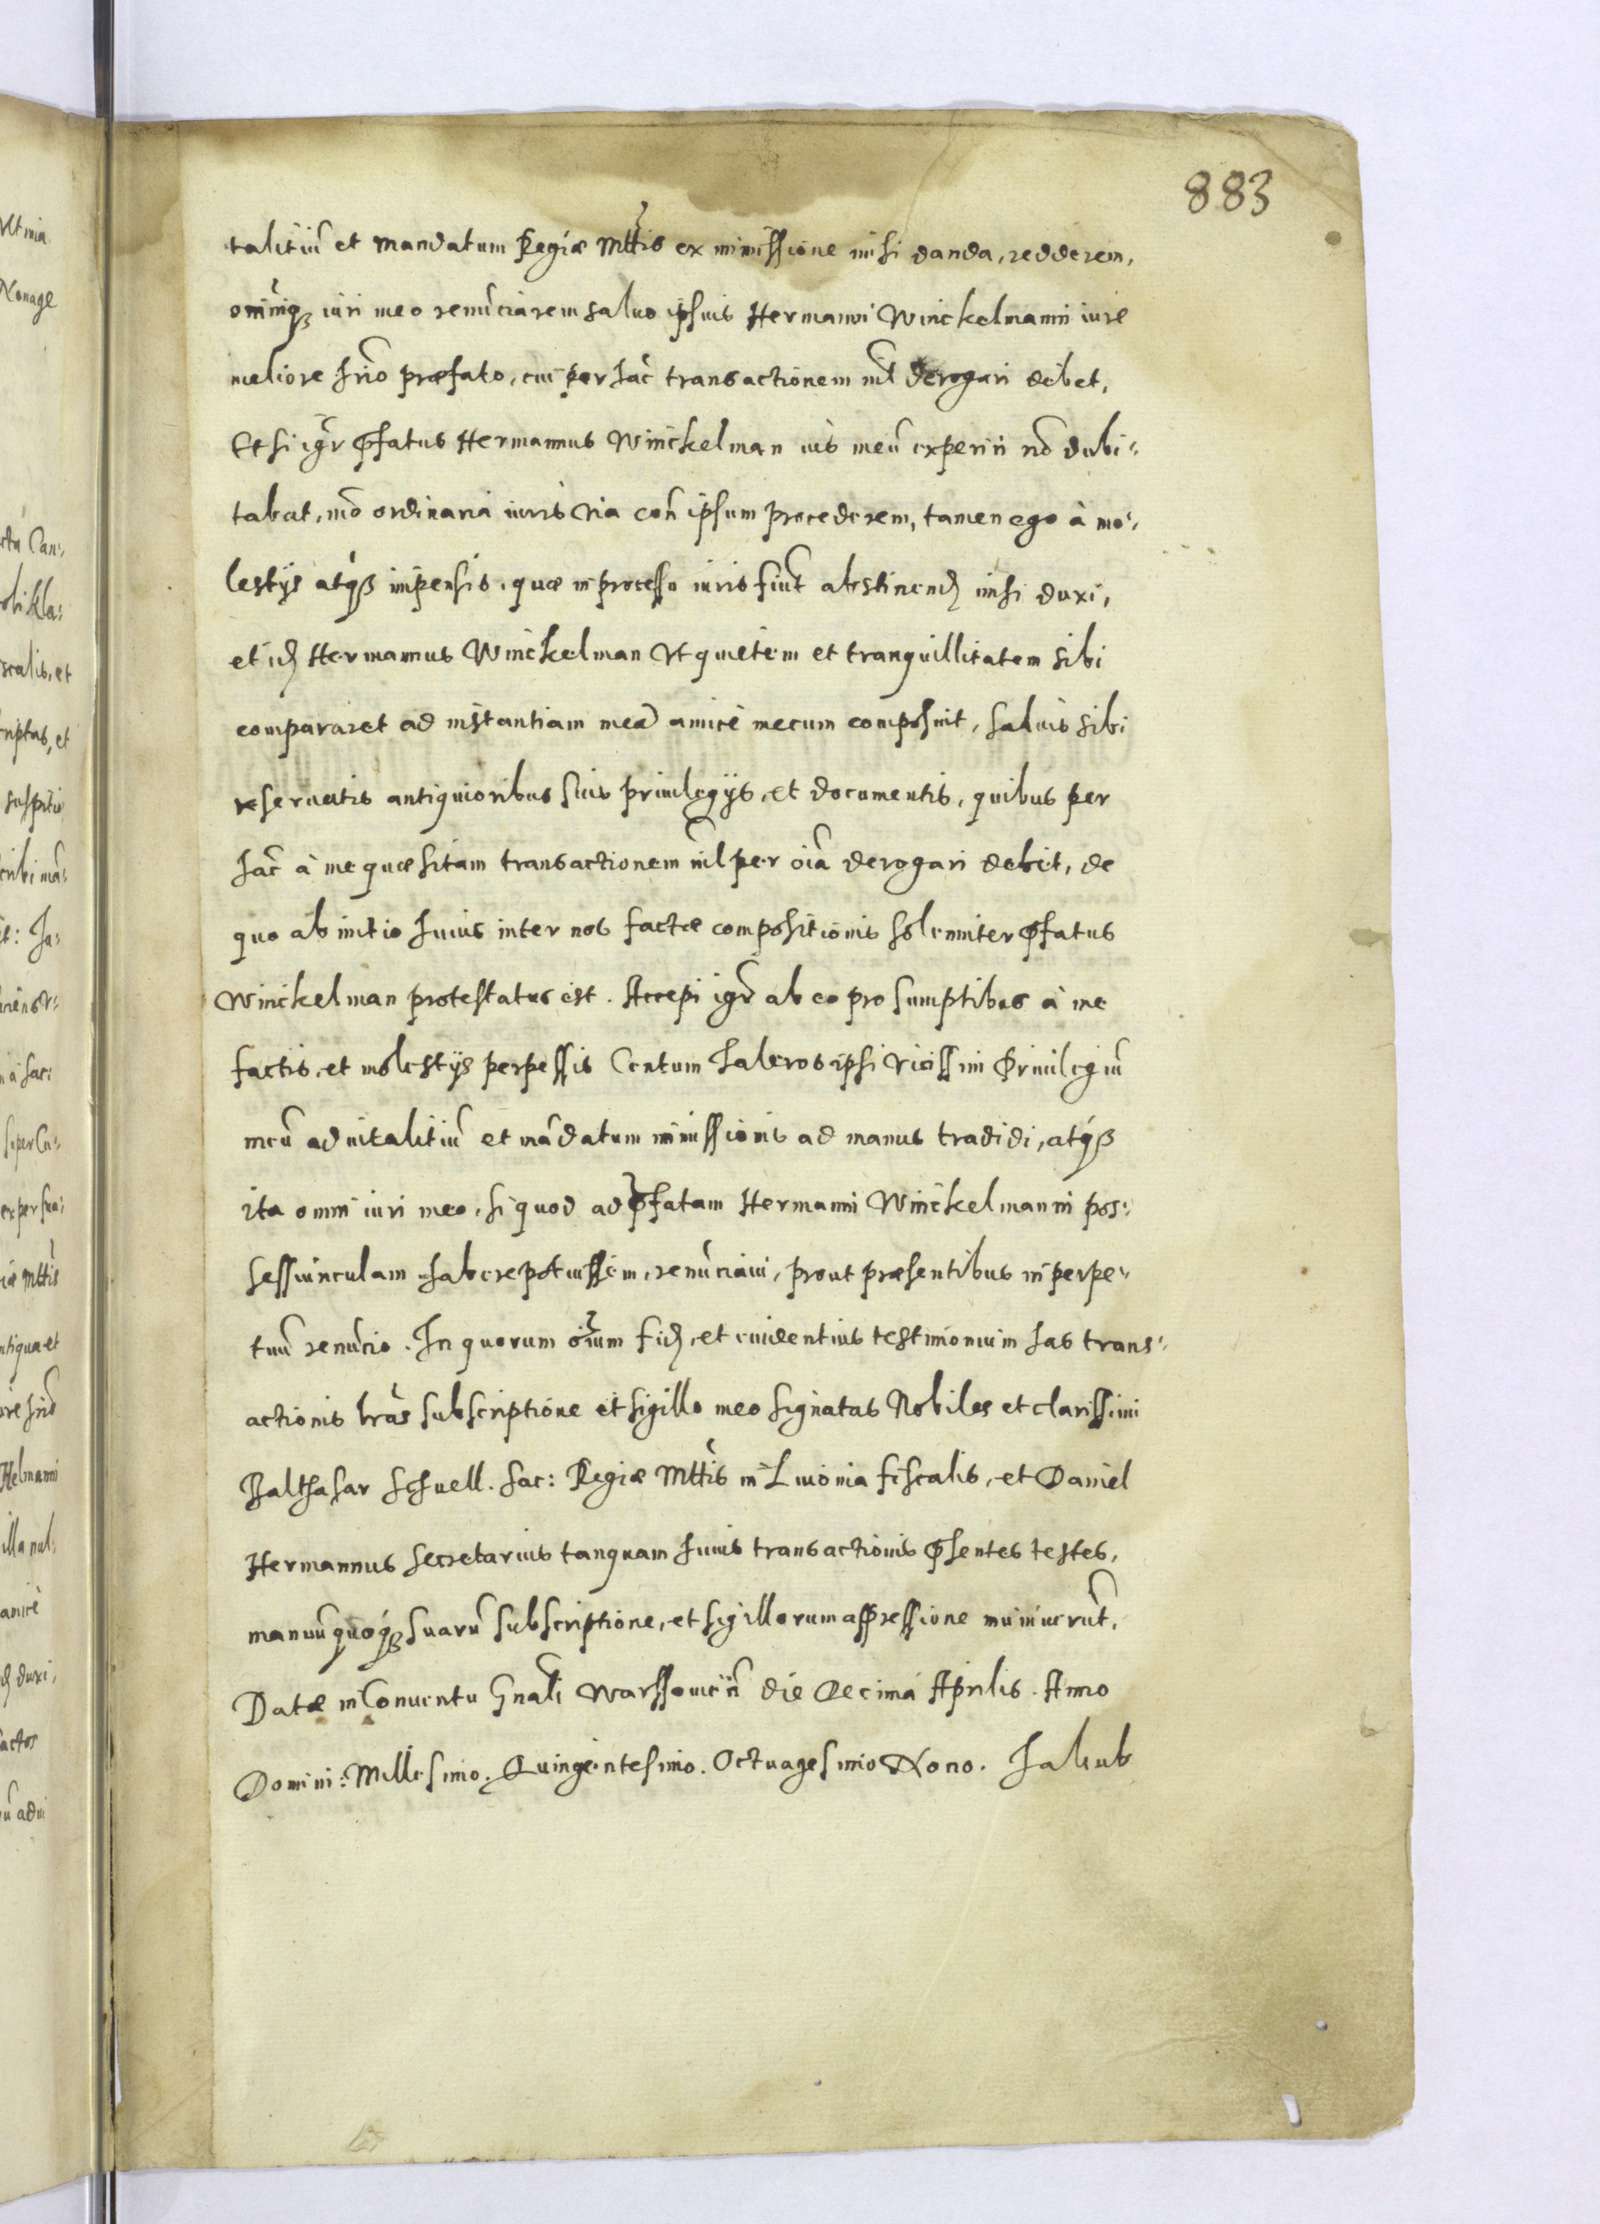 883
talitiũ et mandatum Regiæ Mttis ex inmissione mihi danda, redderem,
omniq́ʒ iuri meo renũciarem saluo ipsius Hermanni Winckelmanni iure
meliore hrĩo præfato, cui per hãc transactionem nĩl derogari debet,
Etsi igr̃ p̃fatus Hermannus Winckelman ius meũ experiri nõ dubi:
tabat, mõ ordinaria iuris via con̄ ipsum procederem, tamen ego à mo:
lestijs atq́ʒ impensis, quæ in processu iuris fiũt abstinend̃ mihi duxi,
et id̃ Hermannus Winckelman vt quietem et tranquillitatem sibi
compararet ad instantiam meã amicè mecum composuit, saluis sibi
reseruatis antiquioribus suis priuilegijs, et documentis, quibus per
hãc à me quæsitam transactionem nĩl per oĩa derogari debet, de
quo ab initio huius inter nos factæ compositionis solenniter p̃fatus
Winckelman protestatus est. Accepi igr̃ ab eo pro sumptibus à me
factis, et molestijs perpessis Centum Taleros ipsi vicissim Priuilegiũ
meũ aduitalitiũ et mãdatum inmissionis ad manus tradidi, atq́ʒ
ita omni iuri meo, si quod ad p̃fatam Hermanni Winckelmanni pos:
sessiunculam habere potuissem, renũciaui, prout præsentibus in perpe:
tuũ renũcio. In quorum oĩum fid̃, et euidentius testimonium has trans:
actionis lr̃as subscriptione et sigillo meo signatas Nobiles et clarissimi
Balthasar Schnell. Sac: Regiæ Mttis in Liuonia fiscalis, et Daniel
Hermannus Secretarius tanquam huius transactionis p̃sentes testes,
manuũ quoq́ʒ suarũ subscriptione, et sigillorum appressione muniuerũt,
Datæ in Conuentu Gñali Warssouieñ die Decima Aprilis. Anno
Domini: Millesimo. Quingentesimo. Octuagesimo Nono. Jakub